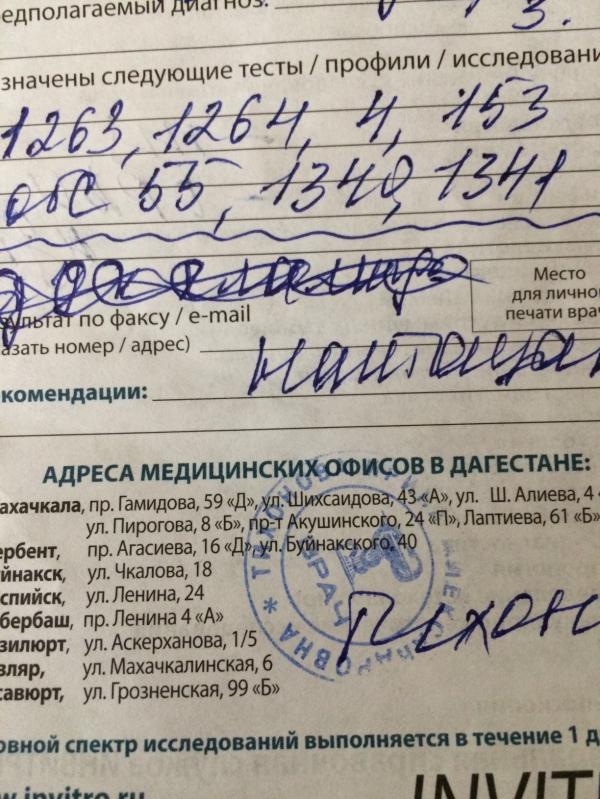 едполагаемый диагноз:
3.
значены следующие тесты / профили / исследовани
1263, 1264, 4, 153
обс 55, 1340, 1341
Место
для лично
печати врач
зультат по факсу / e-mail
казать номер / адрес)
комендации: натощак
АДРЕСА МЕДИЦИНСКИХ ОФИСОВ В ДАГЕСТАНЕ:
ахачкала, пр. Гамидова, 59 «Д», ул. Шихсаидова, 43 «А», ул. Ш. Алиева, 4
ул. Пирогова, 8 «Б», пр-т Акушинского, 24 «П», Лаптиева, 61 «Б»
ербент, пр. Агасиева, 16 «Д», ул. Буйнакского, 40
йнакск, ул. Чкалова, 18
спийск, ул. Ленина, 24
бербаш, пр. Ленина 4 «А»
зилюрт, ул. Аскерханова, 1/5
зляр, ул. Махачкалинская, 6
савюрт, ул. Грозненская, 99 «Б»
ВРАЧ
Тихон
овной спектр исследований выполняется в течение 1 д
w.invitro.ru
INVIT